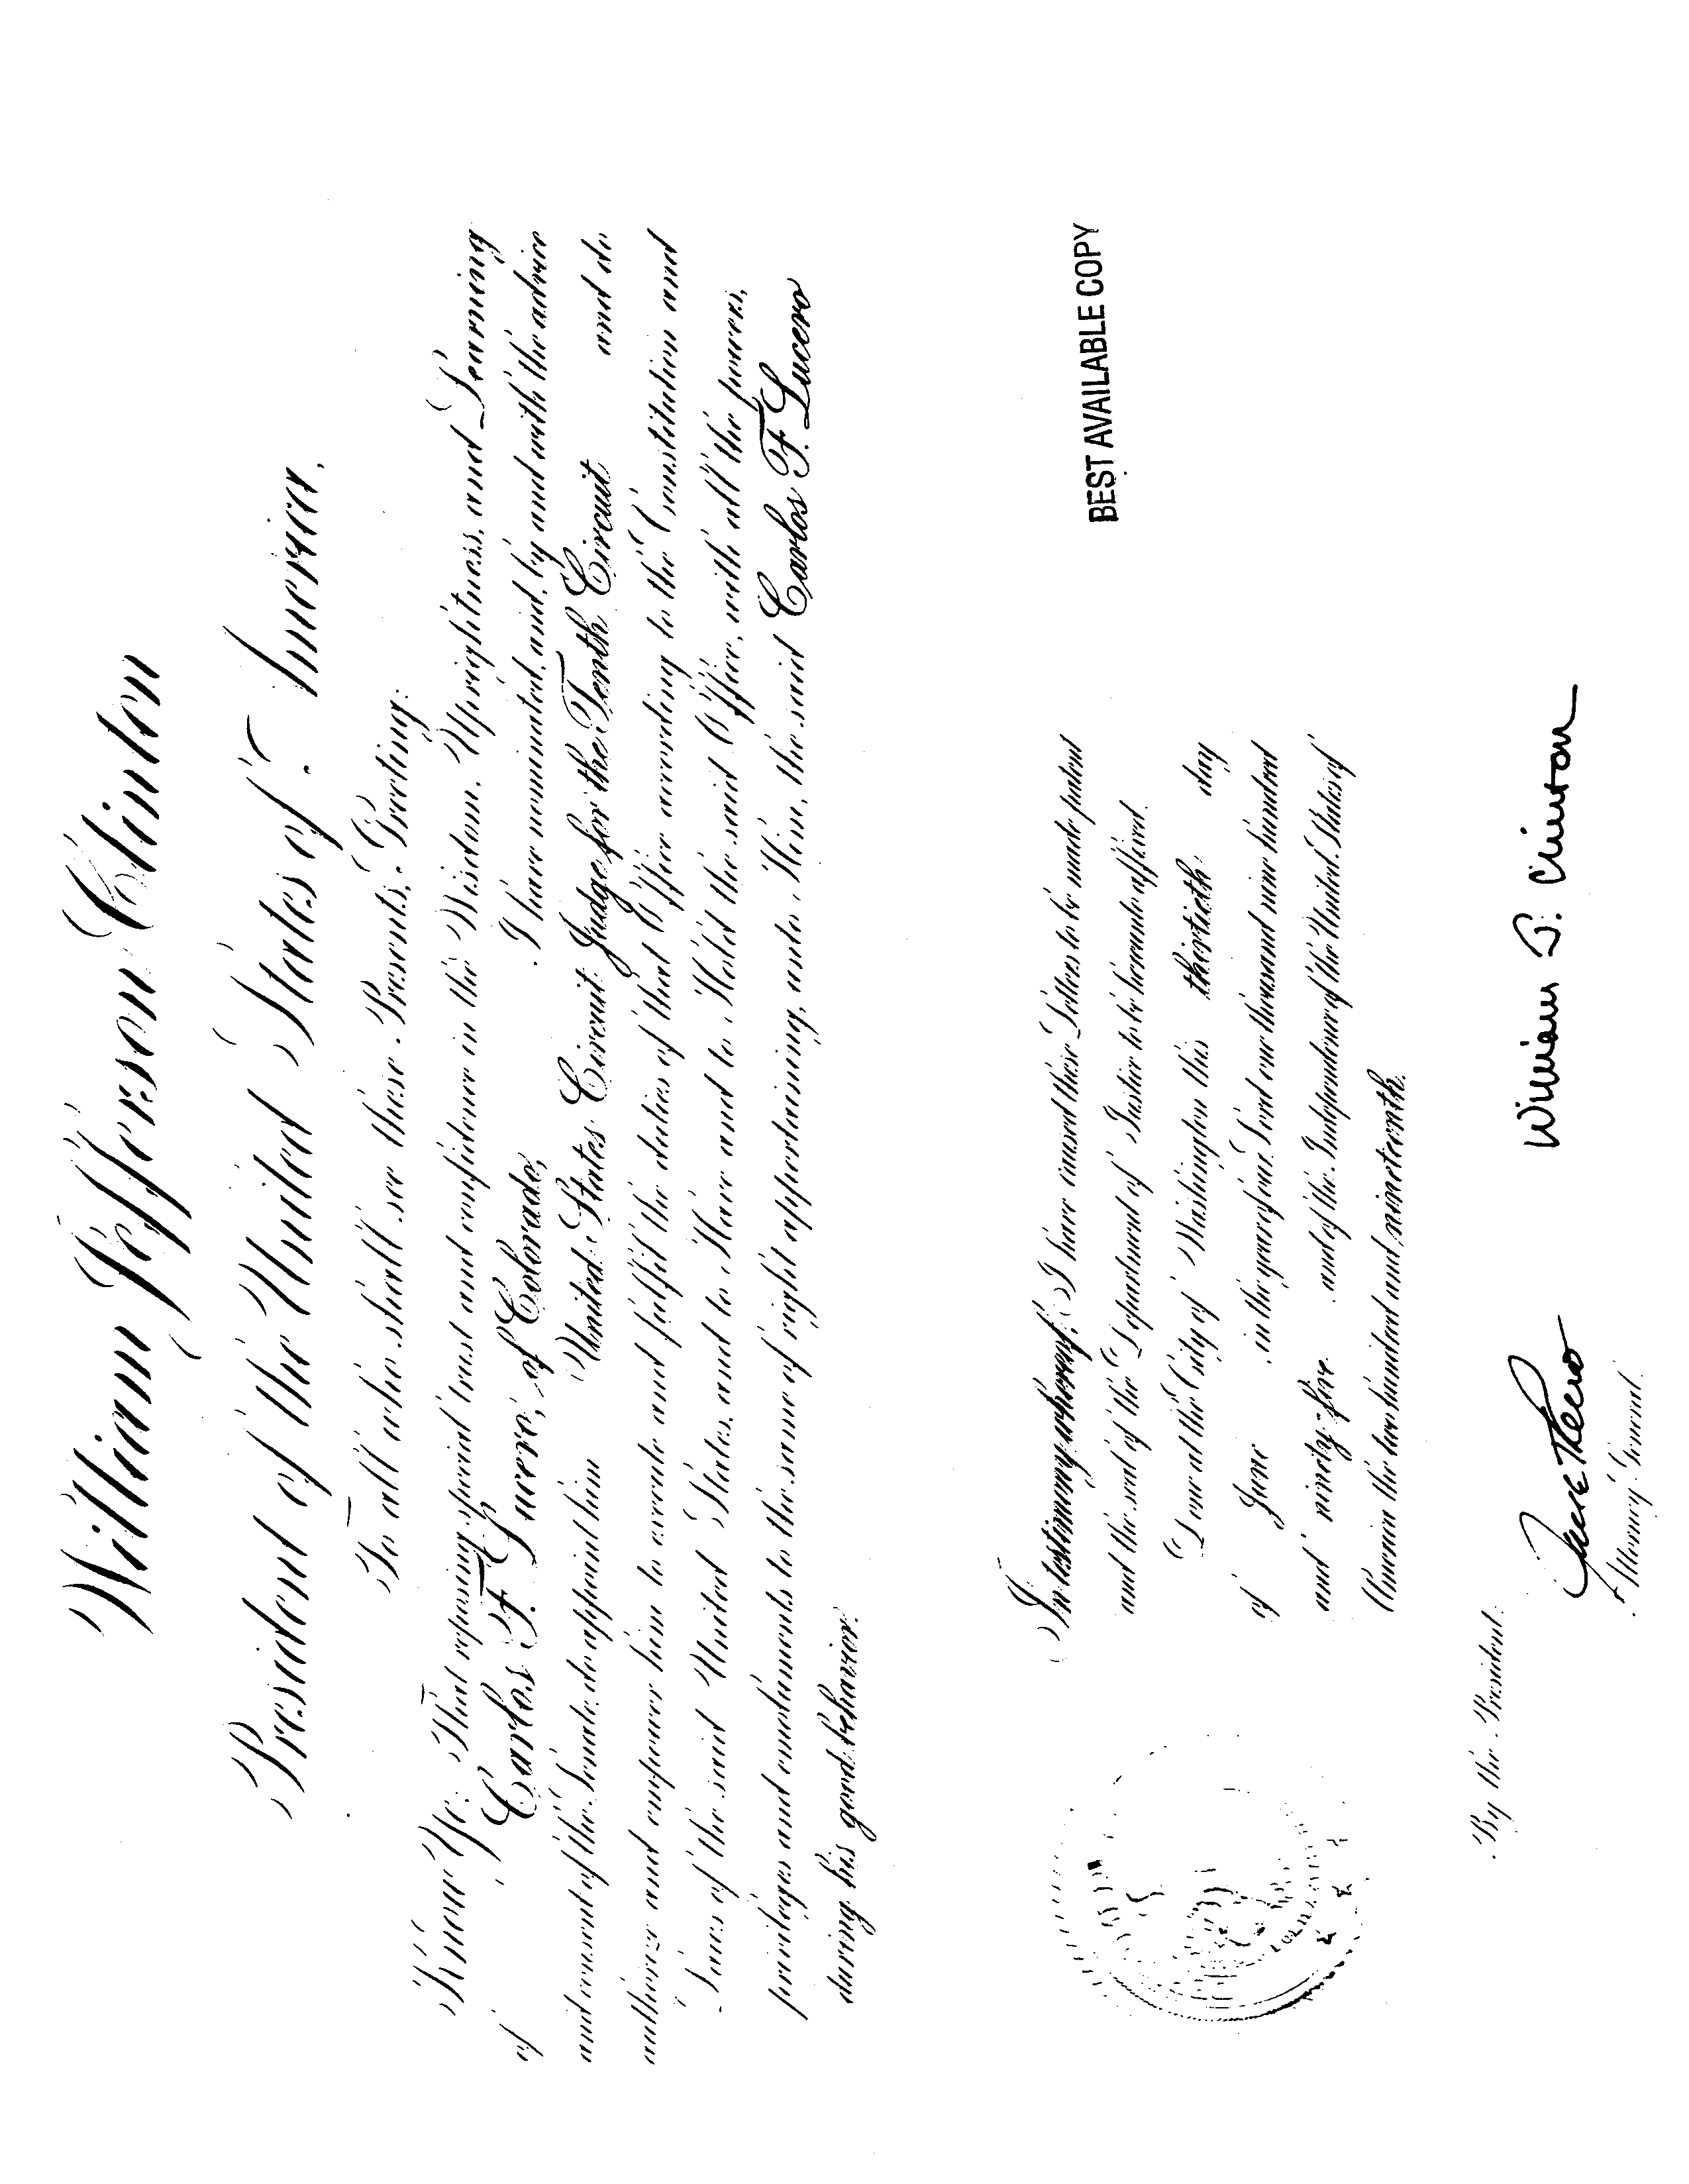 William Jefferson Clinton
President of the United States of America.
To all who shall see these Presents, Greeting:
Know Ye; That reposing special trust and confidence in the Wisdom, Uprightness, and Learning
of Carlos F. Lucero, of Colorado, I have nominated, and, by and with the advice
and consent of the Senate, do appoint him United States Circuit Judge for the Tenth Circuit and do
authorize and empower him to execute and fulfil the duties of that Office according to the Constitution and
Laws of the said United States, and to Have and to Hold the said Office, with all the powers,
privileges and emoluments to the same of right appertaining, unto Him, the said Carlos F. Lucero
during his good behavior.
In testimony whereof, I have caused these Letters to be made patent
and the seal of the Department of Justice to be hereunto affixed.
Done at the City of Washington this thirtieth day
of June in the year of our Lord one thousand nine hundred
and ninety-five and of the Independence of the United States of
America the two hundred and nineteenth.
BEST AVAILABLE COPY
William J. Clinton
By the President:
Janet Reno
Attorney General.